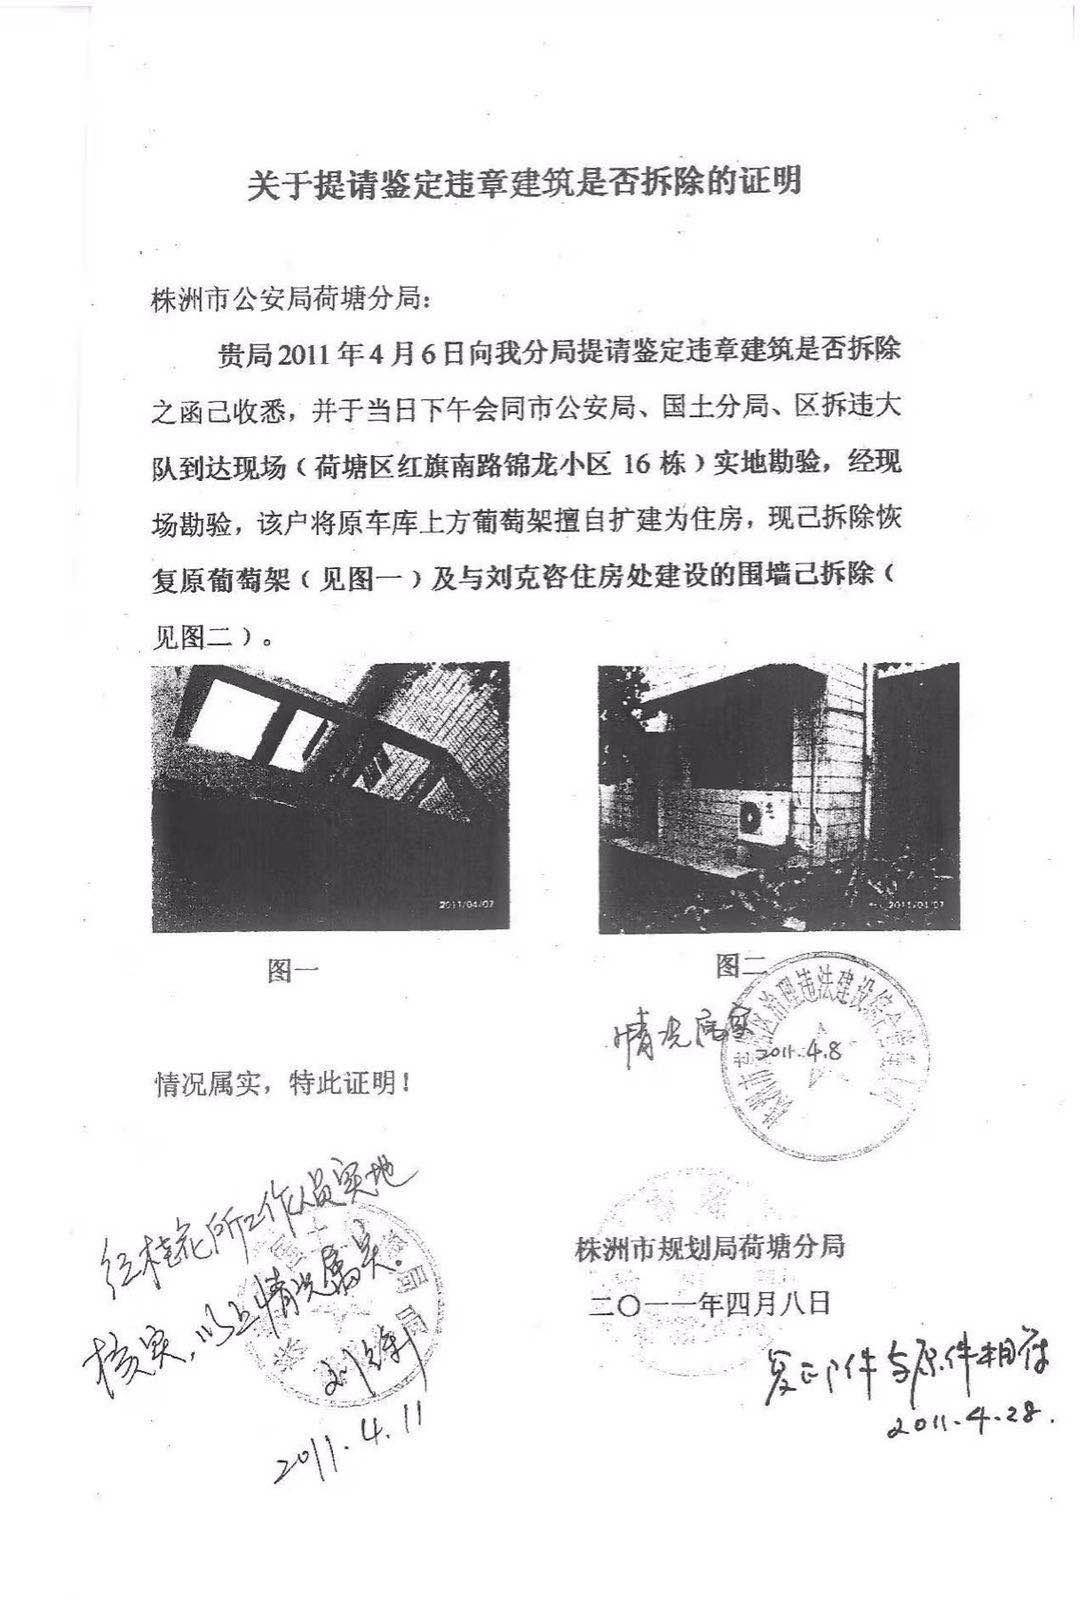 关于提请鉴定违章建筑是否拆除的证明
株洲市公安局荷塘分局：
贵局2011年4月6日向我分局提请鉴定违章建筑是否拆除
之函己收悉，并于当日下午会同市公安局、国土分局、区拆违大
队到达现场（荷塘区红旗南路锦龙小区 16 栋）实地勘验，经现
场勘验，该户将原车库上方葡萄架擅自扩建为住房，现己拆除恢
复原葡萄架（见图一）及与刘克咨住房处建设的围墙己拆除（
见图二）。
2011/04/07
2011/04/07
图一
图二
情况属实
2011.4.8
区治理违法建设综合
情况属实，特此证明！
红桂花所工作人员实地
核实，以上情况属实。
2011.4.11
株洲市规划局荷塘分局
二〇一一年四月八日
复印件与原件相符
2011.4.28.